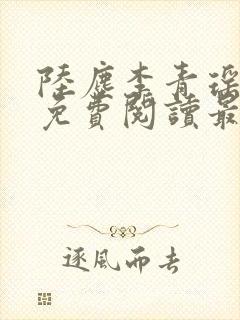 陸塵李青瑤
免費閱讀最
逐風而去